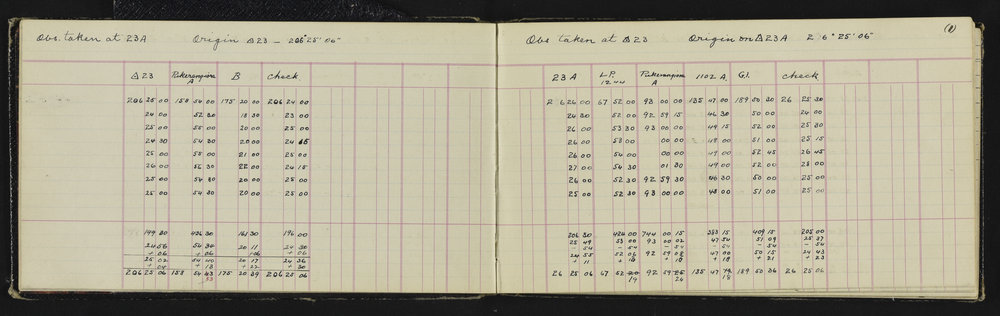 Obs. taken at 23A Origin Δ 23 – 206° 25' 06"
Δ 23 Pukerangiora A B check
206 25 00 158 54 00 175 20 00 206 24 00
24 00 52 30 18 30 23 00
25 00 55 00 20 00 25 00
24 30 54 30 20 00 24
25 00 55 00 21 00 25 00
26 00 55 30 22 00 24 15
25 00 54 30 20 00 25 00
25 00 54 30 20 00 25 00
199 30 436 30 161 30 196 00
24 56 54 34 20 11 24 30
+ 06 + 06 + 06 + 06
25 02 54 40 20 17 24 36
+ 04 + 18 + 22 + 30
206 25 06 158 54 20 39 206 25 06
175
(8)
Obs taken at Δ 23 Origin on Δ 23A 26° 25' 06"
23 A L.P. 1244 Pukerangiora A 1102 A. G.I. check
26 26 00 67 52 00 93 00 00 135 47 00 189 50 30 26 25 30
24 30 52 00 92 59 15 46 30 50 00 24 00
26 00 53 30 93 00 00 49 15 52 00 25 30
26 00 53 00 00 00 48 00 51 00 25 15
26 00 54 00 00 00 49 00 52 45 26 45
27 00 54 30 01 30 49 00 52 00 28 00
26 00 52 30 92 59 30 46 30 50 00 25 00
25 00 52 30 93 00 00 48 00 51 00 25 00
206 30 424 00 744 00 15 383 15 409 15 205 00
25 49 53 00 93 00 02 47 54 51 09 25 37
– 54 – 54 – 54 – 54 – 54 – 54
24 55 52 06 92 59 08 47 00 50 15 24 43
+ 11 + 18 + 18 + 21 + 23
26 25 06 67 52 19 92 59 26 135 47 18 189 50 36 26 25 06